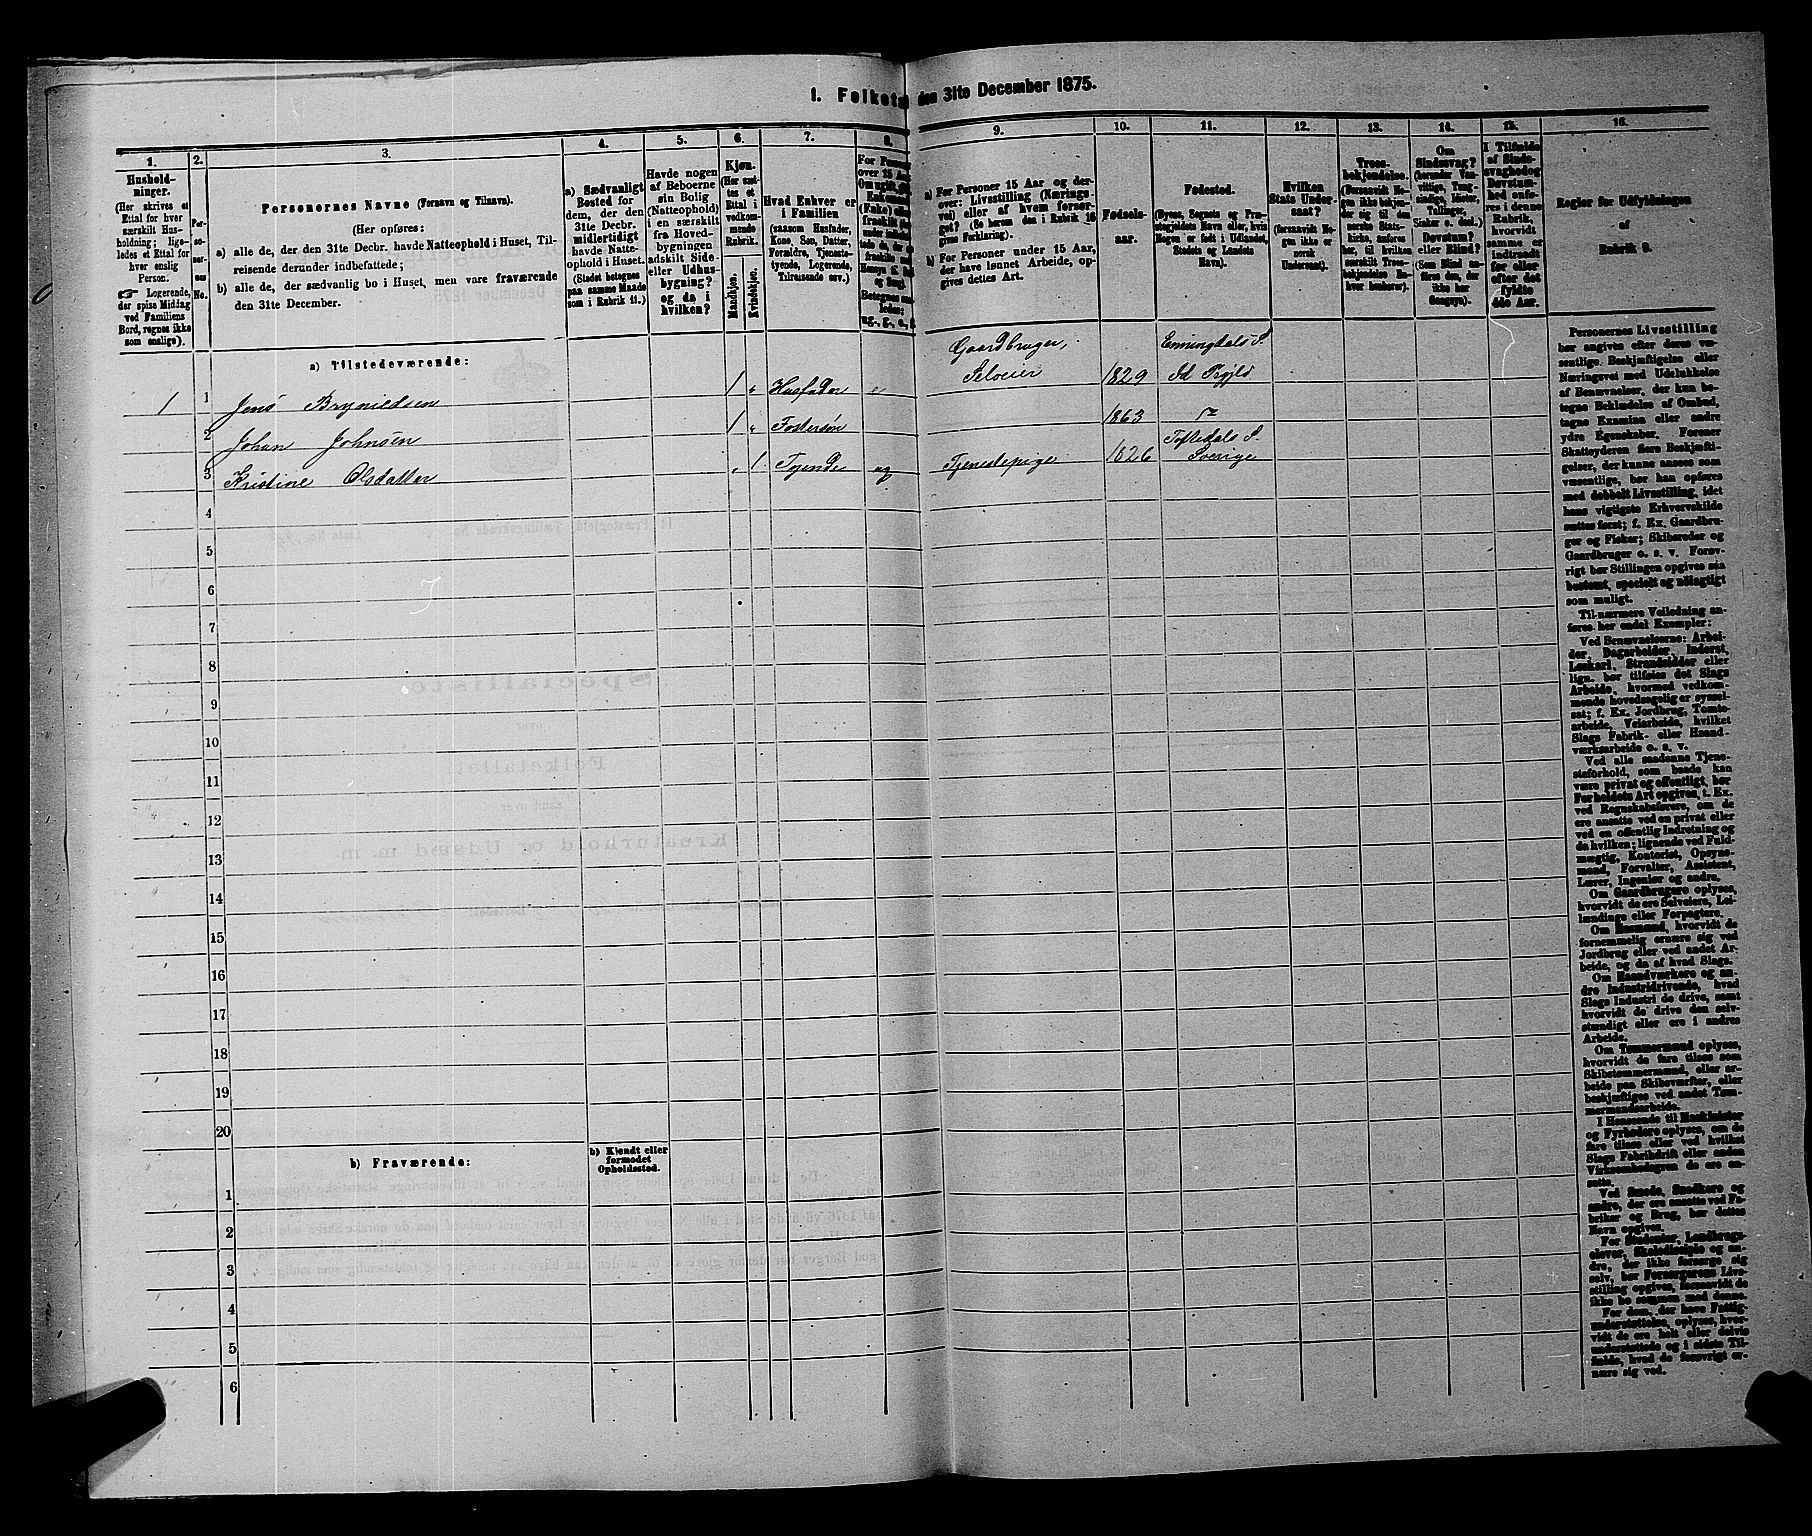 1. Folketal den 31te December 1875.
1. 2. 3. 4. 5. 6. 7. 8. 9. 10. 11. 12. 13. 14. 15. 16.
Hushold-
ninger.
(Her skrives et
Ettal for hver
særskilt Hus-
holdning; lige-
ledes et Ettal for
hver enslig
Person.
☞ Logerende,
der spise Middag
ved Familiens
Bord, regnes ikke
som enslige).
Per-
so-
ner-
nes
No.
Personernes Navne (Fornavn og Tilnavn).
(Her opføres:
a) alle de, der den 31te Decbr. havde Natteophold i Huset, Til-
reisende derunder indbefattede;
b) alle de, der sædvanlig bo i Huset, men vare fraværende
den 31te December.
a) Sædvanligt
Bosted for
dem, der den
31te Decbr.
midlertidigt
havde Natte-
ophold i Huset.
(Stedet betegnes
paa samme Maade
som i Rubrik 11.)
Havde nogen
af Beboerne
sin Bolig
(Natteophold)
i en særskilt
fra Hoved-
bygningen
adskilt Side-
eller Udhus-
bygning?
og da i
hvilken?
Kjøn.
(Her sæt-
tes et
Ettal i
vedkom-
mende
Rubrik.
Mandkjøn.
Kvindekjøn.
Hvad Enhver er
i Familien
(saasom Husfader,
Kone, Søn, Datter,
Forældre, Tjeneste-
tyende, Logerende,
Tilreisende osv.)
a) For Personer 15 Aar og der-
over: Livsstilling (Nærings-
vei) eller af hvem forsør-
get? (Se herom den i Rubrik 16
givne Forklaring).
b) For Personer under 15 Aar,
der have lønnet Arbeide, op-
gives dettes Art.
Fødsels-
aar.
Fødested.
(Byens, Sognets og Præ-
stegjeldets Navn eller, hvis
Nogen er født i Udlandet,
Stedets og Landets
Navn).
Hvilken
Stats Under-
saat?
(forsaavidt No-
gen ikke er
norsk
Undersaat).
Troes-
bekjendelse.
(Forsaavidt No-
gen ikke bekjen-
der sig til den
norske Stats-
kirke, anføres
her, til hvilken
særskilt Troes-
bekjendelse En-
hver henhører).
Om
Sindssvag?
(herunder Van-
vittige, Tung-
sindige, Idioter,
Tullinger,
Sinker o. desl.)
Døvstum?
eller Blind?
(Som Blind an-
føres den, der
ikke har
Gangsyn).
I Tilfælde
af Sinds-
svaghed og
Døvstum-
hed anfø-
res i denne
Rubrik,
hvorvidt
samme er
indtraadt
før eller
efter det
fyldte
4de Aar.
Regler for Udfyldningen
af
Rubrik 9.
a) Tilstedeværende:
Gaardbruger, Enningdals S.
1 1 Jens Brynildsen 1 „ Husfader e Selveier 1829 Id Prgjld
2 Johan Johnsen 1 „ Fostersøn 1863
Toftedals S.
3 Kristine Olsdatter „ 1 Tyende ug Tjenestepige 1826 Sverige
4
5
6
7
8
9
10
11
12
13
14
15
16
17
18
19
20
b) Fraværende:
b) Kjendt eller
formodet
Opholdssted.
1
2
3
4
5
6
Personernes Livsstilling
bør angives efter deres væ-
sentlige Beskjæftigelse eller
Næringsvei med Udelukkelse
af Benævnelser, der kun be-
tegne Beklædelse af Ombud,
tagne Examina eller andre
ydre Egenskaber. Forener
Skatteyderen flere Beskjæfti-
gelser, der kunne ansees som
væsentlige, bør han opføres
med dobbelt Livsstilling, idet
hans vigtigste Erhvervskilde
sættes først; f. Ex. Gaardbru-
ger og Fisker; Skibsreder og
Gaardbruger o. s. v. Forøv-
rigt bør Stillingen opgives saa
bestemt, specielt og nøiagtigt
som muligt.
Til nærmere Veiledning an-
føres her endel Exempler:
Ved Benævnelserne: Arbei-
der, Dagarbeider, Inderst,
Løskarl, Strandsidder eller
lign. bør tilføies det Slags
Arbeide, hvormed vedkom-
mende hovedsagelig er syssel-
sat; f. Ex. Jordbrug, Tomte-
arbeide, Veiarbeide, hvilket
Slags Fabrik- eller Haand-
værksarbeide o. s. v.
Ved alle saadanne Tjene-
steforhold, som baade kan
være privat og offentligt, bør
Forholdets Art opgives, f. Ex.
ved Regnskabsførere, om de
ere ansatte ved en privat eller
ved en offentlig Indretning og
da hvilken; lignende ved Fuld-
mægtig, Kontorist, Opsyns-
mand, Forvalter, Assistent,
Lærer, Ingeniør og andre.
Om Gaardbrugere oplyses,
hvorvidt de ere Selveiere, Lei-
lændinge eller Forpagtere.
Om Husmænd, hvorvidt de
fornemmelig ernære sig ved
Jordbrug eller ved andet Ar-
beide, og da af hvad Slags.
Om Haandværkere og an-
dre Industridrivende, hvad
Slags Industri de drive, samt
hvorvidt de drive den selv-
stændigt eller ere i andres
Arbeide.
Om Tømmermænd oplyses,
hvorvidt de fare tilsøs som
Skibstømmermænd, eller ar-
beide paa Skibsværfter, eller
beskjæftiges ved andet Tøm-
mermandsarbeide.
I Henseende til Maskinister
og Fyrbødere oplyses, om de
fare tilsøs eller ved hvilket
Slags Fabrikdrift eller anden
Virksomhed de ere an-
satte.
Ved Smede, Snedkere og
andre, der ere ansatte ved Fa-
briker og Brug, bør dettes
Navn opgives.
For Studenter, Landbrugs-
elever, Skoledisciple og an-
dre, der ikke forsørge sig
selv, bør Forsørgerens Livs-
stilling opgives, forsaavidt de
ikke bo sammen med denne.
For dem, der have Fattig-
understøttelse, oplyses, hvor-
vidt de ere helt eller delvis
understøttede og i sidste Til-
fælde, hvad de forøvrigt er-
nære sig ved.